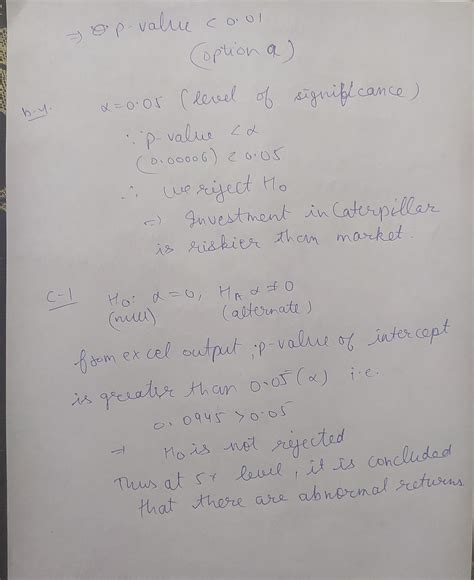 ⇒ p-value < 0.01
(option a)
b-4. α=0.05 (level of significance)
∵ p-value < α
(0.00006) < 0.05
∴ We reject H0
⇒ Investment in Caterpillar
is riskier than market.
C-1 H0: α=0, HA α≠0
(null) (alternate)
from excel output, p-value of intercept
is greater than 0.05(α) i.e.
0.0945 > 0.05
⇒ H0 is not rejected
Thus at 5% level, it is concluded
that there are abnormal returns